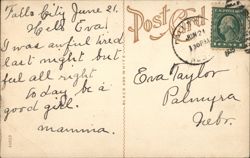 Falls City June 21,
Hello Eva!
I was awful tired
last night but
feel all right
today be a
good girl.
mamma.
Post Card
JUN 21
130 PM
Eva Taylor
Palmyra
Nebr.